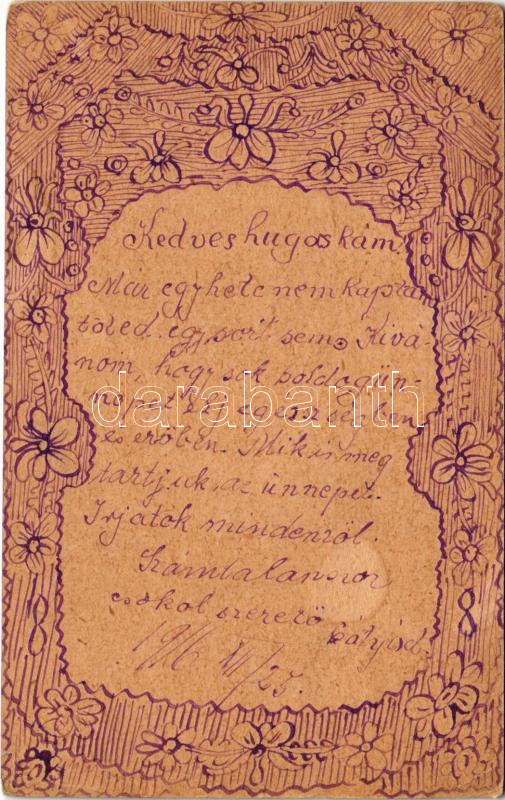 Kedves hugaskám.
Már egy hete nem kaptam
tőled egy sort sem. Kivá-
nom, hogy sok boldog ün-
egészségben
és erőben. Mik is meg
tartjuk az ünnepet.
Irjátok mindenről.
Számtalanszor
csókol szerető bátyád.
1916 V/25.
darabanth